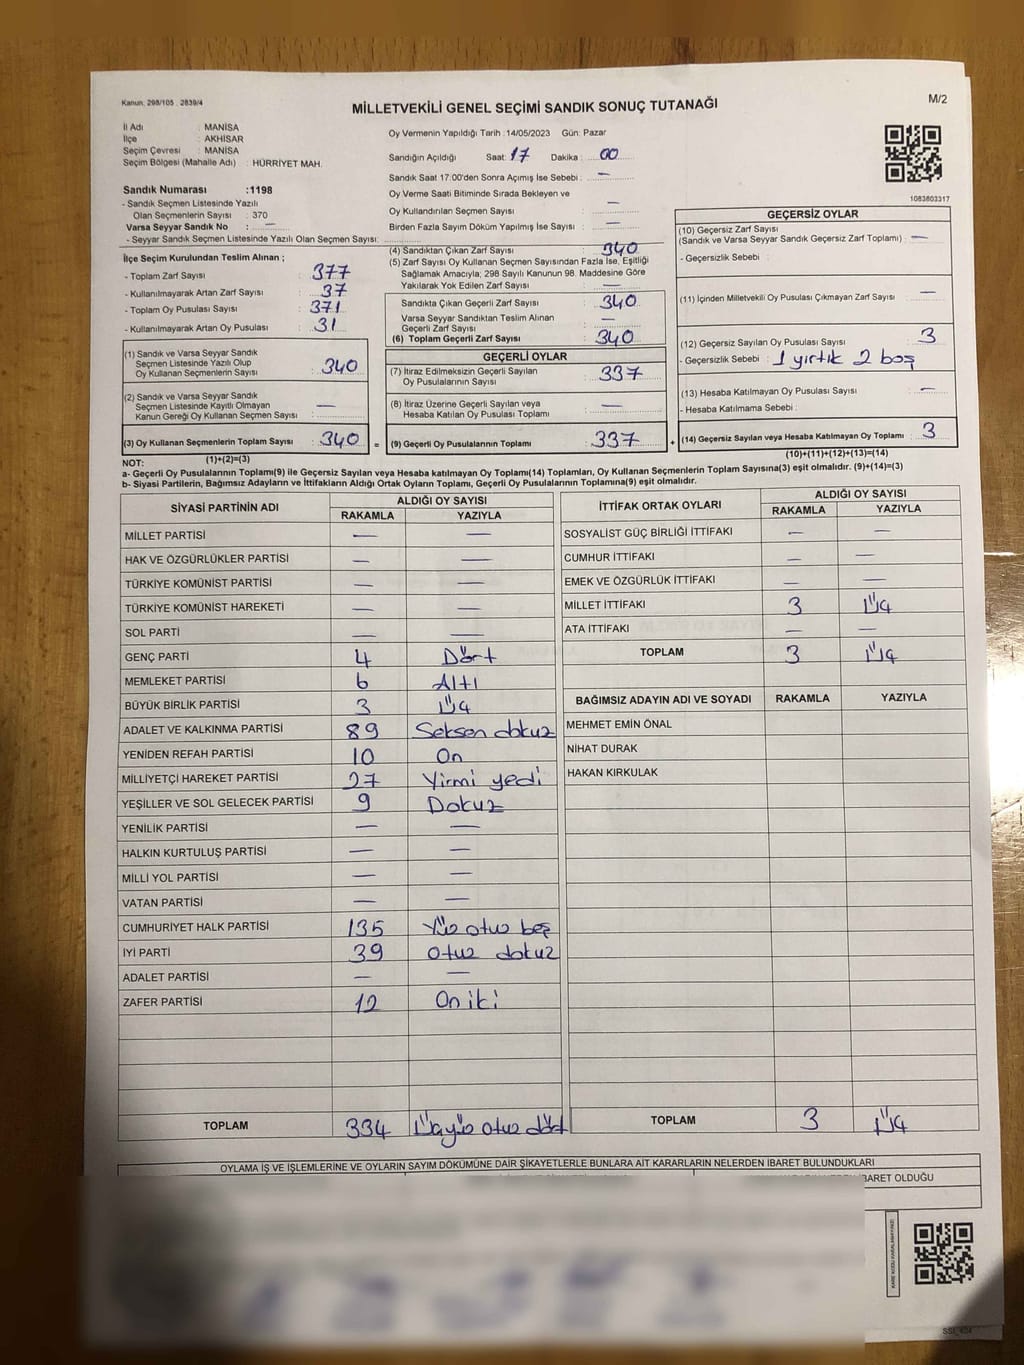 Kanun: 298/105 . 2839/4
MİLLETVEKİLİ GENEL SEÇİMİ SANDIK SONUÇ TUTANAĞI
M/2
İl Adı : MANİSA
İlçe : AKHİSAR
Seçim Çevresi : MANİSA
Seçim Bölgesi (Mahalle Adı) : HÜRRİYET MAH.
Oy Vermenin Yapıldığı Tarih : 14/05/2023 Gün: Pazar
Sandığın Açıldığı Saat: 17 Dakika : 00
Sandık Saat 17:00'den Sonra Açımış İse Sebebi : —
Oy Verme Saati Bitiminde Sırada Bekleyen ve
Oy Kullandırılan Seçmen Sayısı : —
Birden Fazla Sayım Döküm Yapılmış İse Sayısı : —
1083803317
Sandık Numarası :1198
- Sandık Seçmen Listesinde Yazılı
Olan Seçmenlerin Sayısı : 370
Varsa Seyyar Sandık No : —
- Seyyar Sandık Seçmen Listesinde Yazılı Olan Seçmen Sayısı:
İlçe Seçim Kurulundan Teslim Alınan ;
- Toplam Zarf Sayısı : 377
- Kullanılmayarak Artan Zarf Sayısı : 37
- Toplam Oy Pusulası Sayısı : 371
- Kullanılmayarak Artan Oy Pusulası : 31
(1) Sandık ve Varsa Seyyar Sandık
Seçmen Listesinde Yazılı Olup
Oy Kullanan Seçmenlerin Sayısı : 340
(2) Sandık ve Varsa Seyyar Sandık
Seçmen Listesinde Kayıtlı Olmayan
Kanun Gereği Oy Kullanan Seçmen Sayısı : —
(3) Oy Kullanan Seçmenlerin Toplam Sayısı : 340 =
(1)+(2)=(3)
(4) Sandıktan Çıkan Zarf Sayısı : 340
(5) Zarf Sayısı Oy Kullanan Seçmen Sayısından Fazla İse, Eşitliği
Sağlamak Amacıyla; 298 Sayılı Kanunun 98. Maddesine Göre
Yakılarak Yok Edilen Zarf Sayısı : —
Sandıkta Çıkan Geçerli Zarf Sayısı : 340
Varsa Seyyar Sandıktan Teslim Alınan
Geçerli Zarf Sayısı : —
(6) Toplam Geçerli Zarf Sayısı : 340
GEÇERLİ OYLAR
(7) İtiraz Edilmeksizin Geçerli Sayılan
Oy Pusulalarının Sayısı : 337
(8) İtiraz Üzerine Geçerli Sayılan veya
Hesaba Katılan Oy Pusulası Toplamı : —
(9) Geçerli Oy Pusulalarının Toplamı : 337 +
GEÇERSİZ OYLAR
(10) Geçersiz Zarf Sayısı
(Sandık ve Varsa Seyyar Sandık Geçersiz Zarf Toplamı) : —
- Geçersizlik Sebebi :
(11) İçinden Milletvekili Oy Pusulası Çıkmayan Zarf Sayısı : —
(12) Geçersiz Sayılan Oy Pusulası Sayısı : 3
- Geçersizlik Sebebi : 1 yırtık 2 boş
(13) Hesaba Katılmayan Oy Pusulası Sayısı : —
- Hesaba Katılmama Sebebi :
(14) Geçersiz Sayılan veya Hesaba Katılmayan Oy Toplamı : 3
(10)+(11)+(12)+(13)=(14)
NOT:
a- Geçerli Oy Pusulalarının Toplamı(9) ile Geçersiz Sayılan veya Hesaba katılmayan Oy Toplamı(14) Toplamları, Oy Kullanan Seçmenlerin Toplam Sayısına(3) eşit olmalıdır. (9)+(14)=(3)
b- Siyasi Partilerin, Bağımsız Adayların ve İttifakların Aldığı Ortak Oyların Toplamı, Geçerli Oy Pusulalarının Toplamına(9) eşit olmalıdır.
SİYASİ PARTİNİN ADI ALDIĞI OY SAYISI
RAKAMLA YAZIYLA
MİLLET PARTİSİ — —
HAK VE ÖZGÜRLÜKLER PARTİSİ — —
TÜRKİYE KOMÜNİST PARTİSİ — —
TÜRKİYE KOMÜNİST HAREKETİ — —
SOL PARTİ — —
GENÇ PARTİ 4 Dört
MEMLEKET PARTİSİ 6 Altı
BÜYÜK BİRLİK PARTİSİ 3 Üç
ADALET VE KALKINMA PARTİSİ 89 Seksen dokuz
YENİDEN REFAH PARTİSİ 10 On
MİLLİYETÇİ HAREKET PARTİSİ 27 Yirmi yedi
YEŞİLLER VE SOL GELECEK PARTİSİ 9 Dokuz
YENİLİK PARTİSİ — —
HALKIN KURTULUŞ PARTİSİ — —
MİLLİ YOL PARTİSİ — —
VATAN PARTİSİ — —
CUMHURİYET HALK PARTİSİ 135 Yüz otuz beş
İYİ PARTİ 39 Otuz dokuz
ADALET PARTİSİ — —
ZAFER PARTİSİ 12 On iki
TOPLAM 334 Üçyüz otuz dört
İTTİFAK ORTAK OYLARI ALDIĞI OY SAYISI
RAKAMLA YAZIYLA
SOSYALİST GÜÇ BİRLİĞİ İTTİFAKI — —
CUMHUR İTTİFAKI — —
EMEK VE ÖZGÜRLÜK İTTİFAKI — —
MİLLET İTTİFAKI 3 Üç
ATA İTTİFAKI — —
TOPLAM 3 Üç
BAĞIMSIZ ADAYIN ADI VE SOYADI RAKAMLA YAZIYLA
MEHMET EMİN ÖNAL
NİHAT DURAK
HAKAN KIRKULAK
TOPLAM 3 Üç
OYLAMA İŞ VE İŞLEMLERİNE VE OYLARIN SAYIM DÖKÜMÜNE DAİR ŞİKAYETLERLE BUNLARA AİT KARARLARIN NELERDEN İBARET BULUNDUKLARI
İBARET OLDUĞU